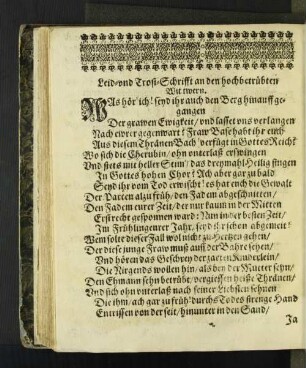 Leid-vnd Trost-Schrifft an den hochbetrübten
Witwern.
WAs hör' ich! seyd ihr auch den Berg hinauff ge-
gangen
Der grawen Ewigkeit/ vnd lasset vns verlangen
Nach ewrer gegenwart! Fraw Base habt ihr euch
Aus diesem Thränen Bach/ verfügt in Gottes Reich?
Wo sich die Cherubin/ ohn vnterlaß erschwingen
Vnd stets mit heller Stim/ das dreymahl Heilig singen
In Gottes hohen Chor? Ach aber gar zu bald
Seyd ihr vom Tod erwischt! es hat euch die Gewalt
Der Parcen alzu früh/ den Fadem abgeschnitten/
Den Fadem eurer Zeit/ der nur kaum in der Mitten
Erst recht gesponnen ward: Nun in der besten Zeit/
Im Frühlinge ewrer Jahr, seyd ihr schon abgemeit!
Wem solte dieser Fall wol nicht zu Hertzen gehen/
Der diese junge Fraw muß auff der Bahre sehen/
Vnd hören das Geschrey der zarten Kinderlein/
Die Nirgends wollen hin/ als bey der Mutter seyn/
Den Ehmann sehn betrübt/ vergiessen heisse Thränen/
Vnd sich ohn vnterlaß nach seiner Liebsten sehnen
Die ihm/ ach gar zu früh! durchs Todes strenge Hand
Entrissen von der seit/ hinunter in den Sand/
Ja